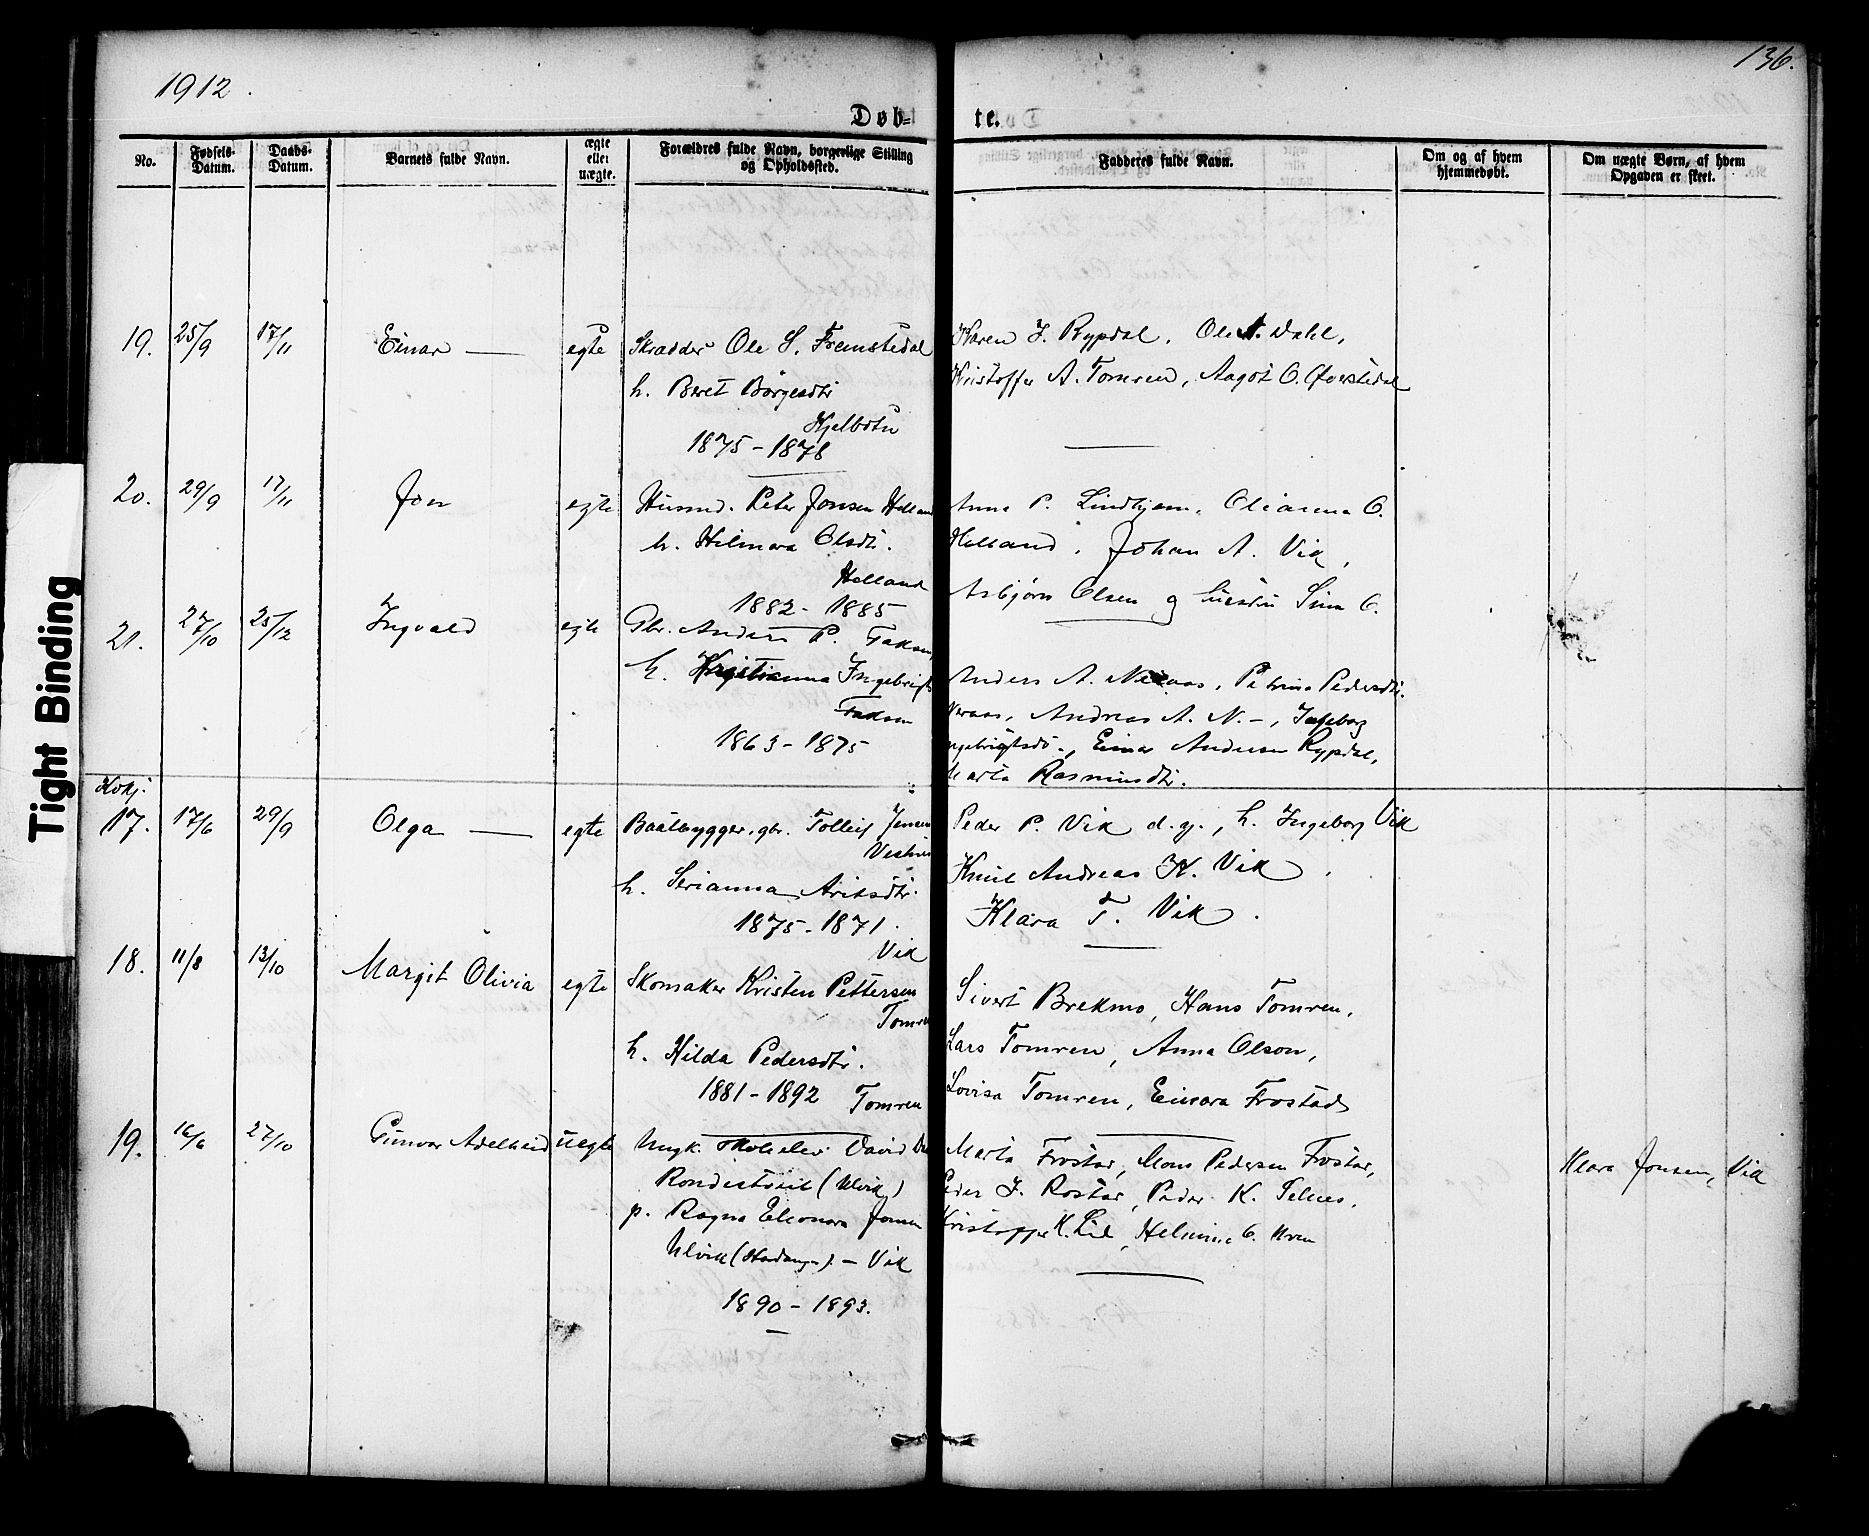 1912.
136.
Døb-
te.
No.
Fødsels-
Datum.
Daabs-
Datum.
Barnets fulde Navn.
ægte
eller
uægte.
Forældres fulde Navn, borgerlige Stilling
og Opholdssted.
Fadderes fulde Navn.
Om og af hvem
hjemmedøbt.
Om uægte Børn, af hvem
Opgaven er skeet.
19. 25/9 17/11 Einar egte Skrædder Ole S. Fremstedal
h. Beret Børgesdtr
Hjelbotn
1875 - 1878
Karen J. Rypdal, Ole A. Dahl,
Kristoffer A. Tomren, Aagot O. Øverstedal
20. 29/9 17/11 Jon egte Husmd. Peter Jonsen Helland
h. Hilmara Olsdtr.
Helland
1882 - 1885
Anna P. Lindhjem, Oliania O.
Helland, Johan A. Vik,
Asbjørn Olsen og Sina O.
21. 27/10 25/12 Ingvald egte Gbr. Anders P. Faksen
h. Kristianna Ingebrigts
Faksen
1863 - 1875
Anders A. Neraas, Petrina Pedersdtr.
Neraas, Andreas A. N.-, Ingeborg
Ingebrigtsdtr., Einar Andersen Rypdal,
Marta Rasmusdtr.
17. 17/6 29/9 Olga egte Baatbygger, gbr. Tolleif Jensen
h. Serianna Ariksdtr.
1875 - 1871.
Vik
Peder P. Vik d.y., h. Ingeborg Vik
Knut Andreas K. Vik
Klara T. Vik.
18. 11/8 13/10 Margit Olivia egte Skomaker Kristen Pettersen
Tomren
h. Hilda Pedersdtr.
1881 - 1892 Tomren
Sivert Brekmo, Hans Tomren,
Lars Tomren, Anna Olson,
Lovisa Tomren, Einara Frostad
19. 16/6 27/10 Gunvor Adelheid uegte Ungk. David
(Ulvik)
p. Ragna Eleonora Jonsen
Ulvik (Hardanger) - Vik
1890 - 1893.
Marta Frostad, Mons Pedersen Frostad,
Peder J. Rostad, Peder K. Selnes,
Kristoffer K. Lid, Helmine O. Hven
Klara Jonsen, Vik
Tight Binding